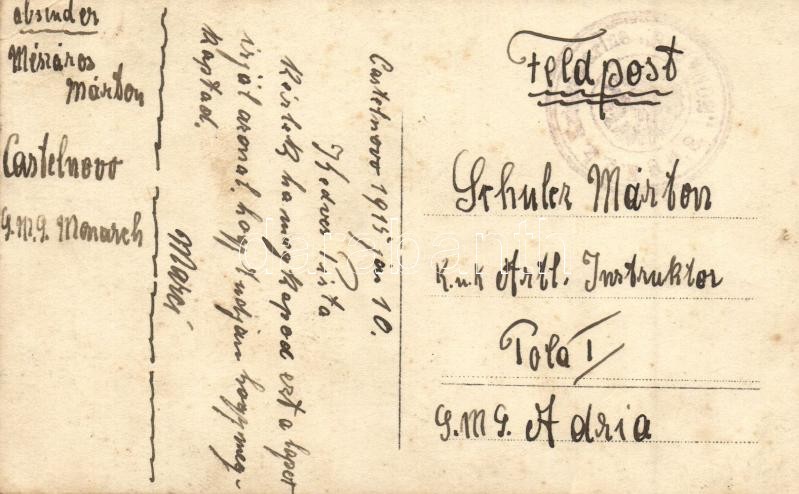 absender
Mészáros
Márton
Castelnovo
S.M.S. Monarch
Castelnovo 1915 jan 10.
Kedves Pista
Kérlek ha megkapod ezt a lapot
irjál azonal, hogy tudjam hogy meg-
kaptad.
Marci
Feldpost
Schuler Márton
K.u.k Artl. Instruktor
Pola I
S.M.S. Adria
darabanth